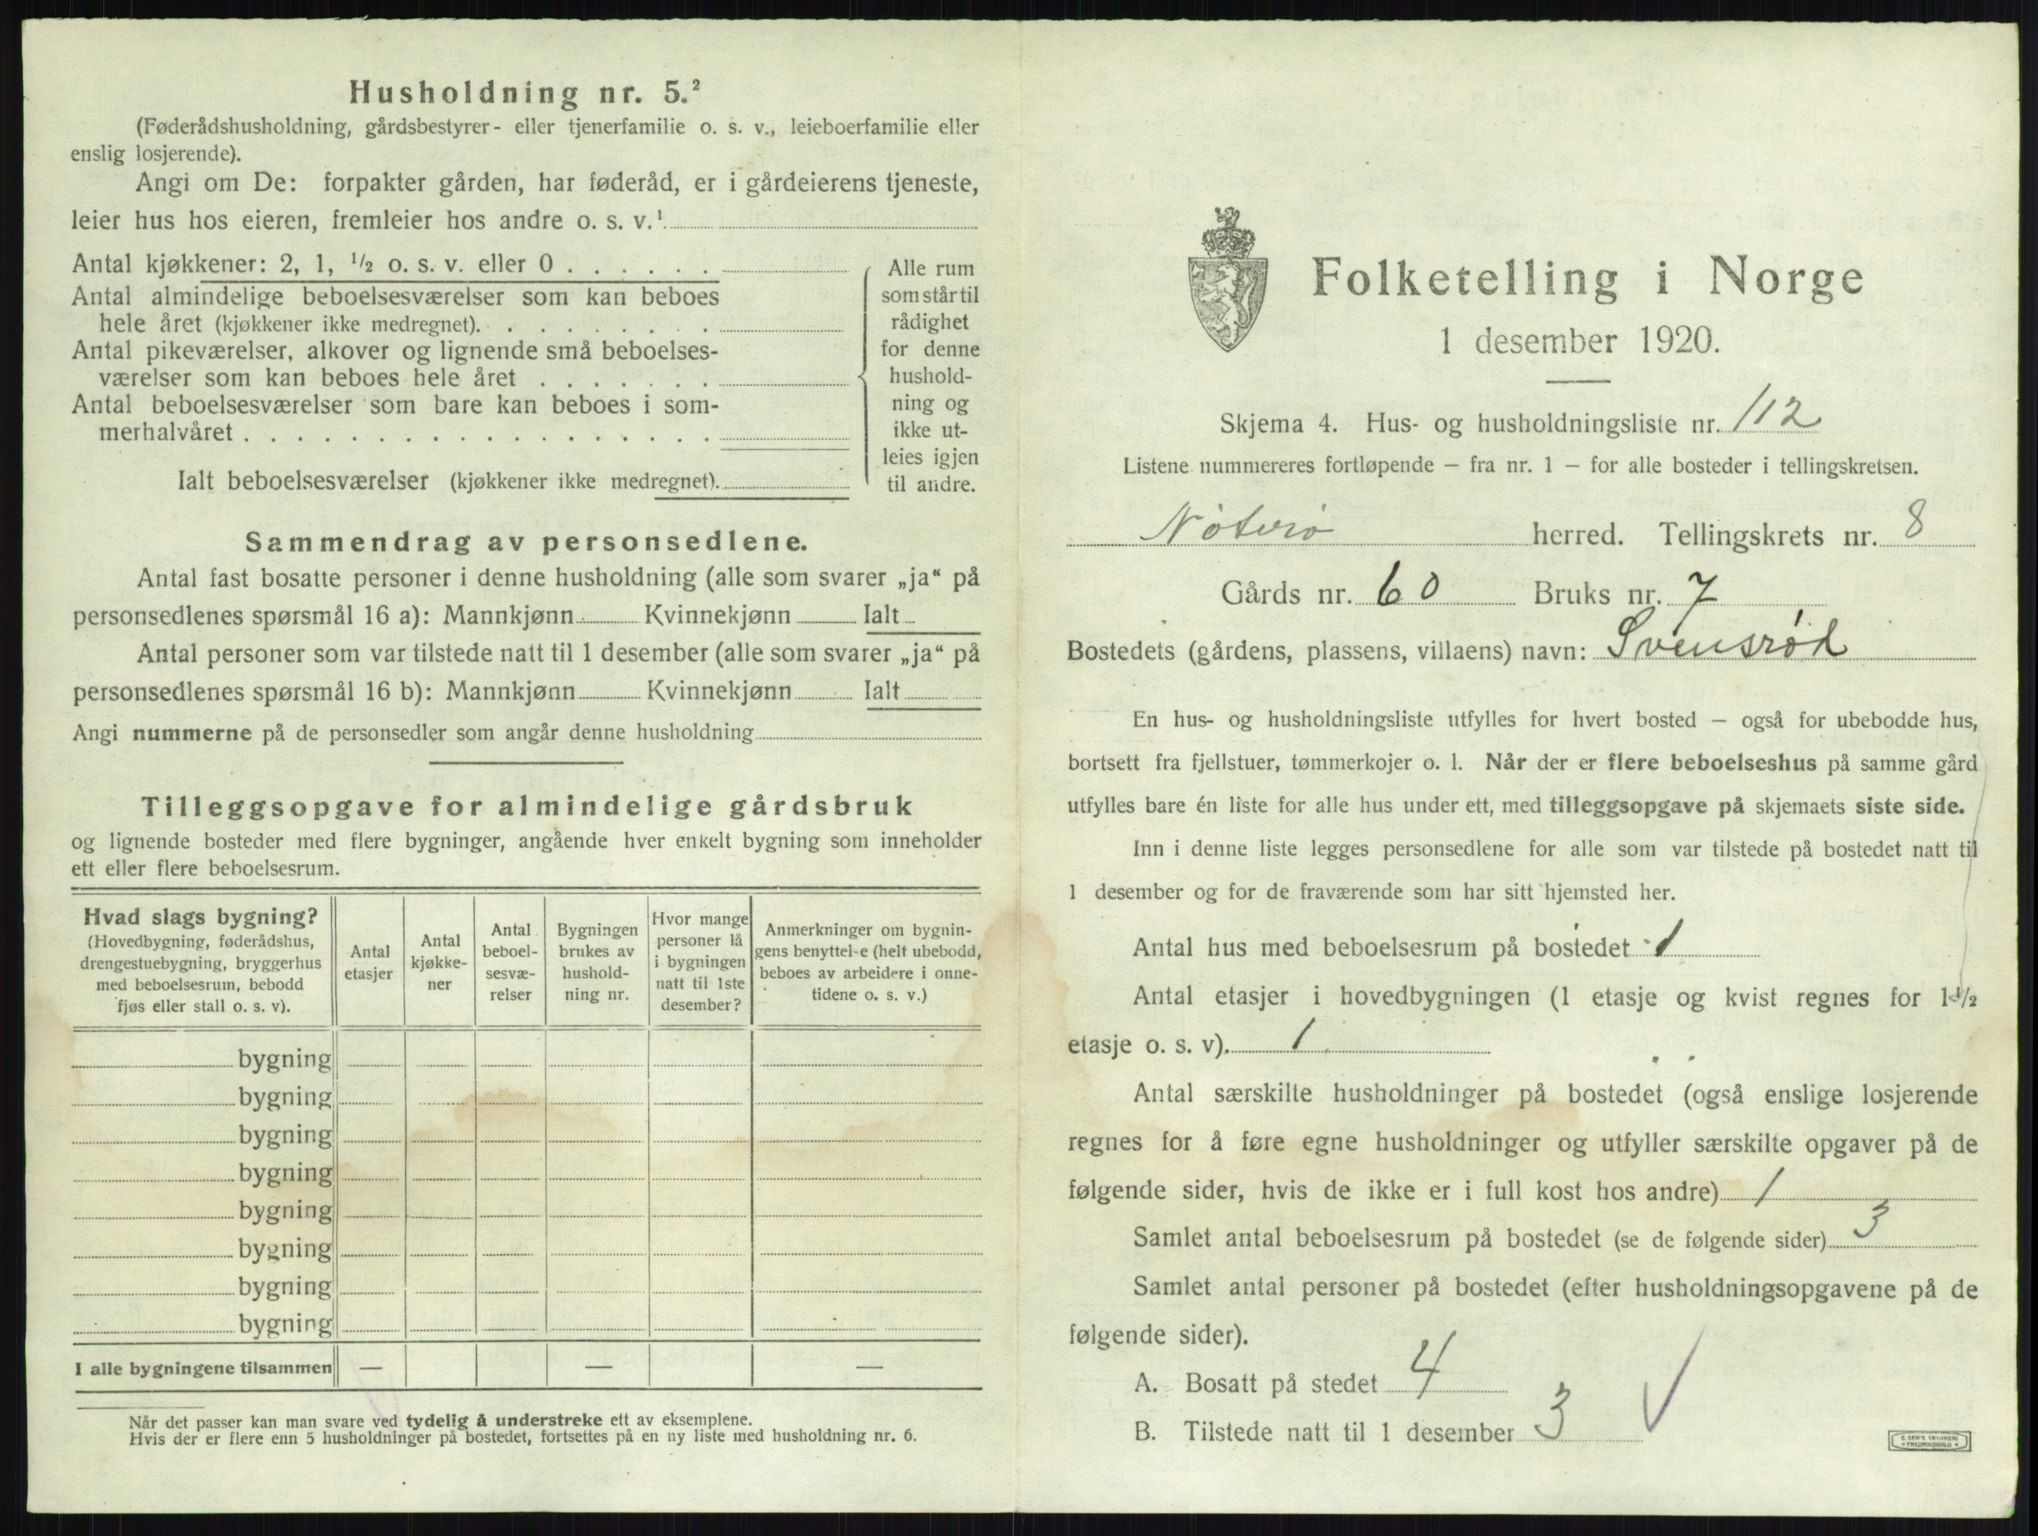 Husholdning nr. 5.²
(Føderådshusholdning, gårdsbestyrer- eller tjenerfamilie o. s. v., leieboerfamilie eller
enslig losjerende).
Angi om De: forpakter gården, har føderåd, er i gårdeierens tjeneste,
leier hus hos eieren, fremleier hos andre o. s. v.¹
Antal kjøkkener: 2, 1, ½ o. s. v. eller 0 . . . . . .
Antal almindelige beboelsesværelser som kan beboes
hele året (kjøkkener ikke medregnet). . . . . . . . .
Antal pikeværelser, alkover og lignende små beboelses-
værelser som kan beboes hele året . . . . . . .
Antal beboelsesværelser som bare kan beboes i som-
merhalvåret . . . . . . . . . . . . . . . . . .
Ialt beboelsesværelser (kjøkkener ikke medregnet).
Alle rum
som står til
rådighet
for denne
hushold-
ning og
ikke ut-
leies igjen
til andre.
Sammendrag av personsedlene.
Antal fast bosatte personer i denne husholdning (alle som svarer „ja“ på
personsedlenes spørsmål 16 a): Mannkjønn Kvinnekjønn Ialt
Antal personer som var tilstede natt til 1 desember (alle som svarer „ja“ på
personsedlenes spørsmål 16 b): Mannkjønn Kvinnekjønn Ialt
Angi nummerne på de personsedler som angår denne husholdning
Tilleggsopgave for almindelige gårdsbruk
og lignende bosteder med flere bygninger, angående hver enkelt bygning som inneholder
ett eller flere beboelsesrum.
Hvad slags bygning?
(Hovedbygning, føderådshus,
drengestuebygning, bryggerhus
med beboelsesrum, bebodd
fjøs eller stall o. s. v).
Antal
etasjer
Antal
kjøkke-
ner
Antal
beboel-
sesvæ-
relser
Bygningen
brukes av
hushold-
ning nr.
Hvor mange
personer lå
i bygningen
natt til 1ste
desember?
Anmerkninger om bygnin-
gens benyttel-e (helt ubebodd,
beboes av arbeidere i onne-
tidene o. s. v.)
bygning
bygning
bygning
bygning
bygning
bygning
bygning
bygning
I alle bygningene tilsammen — — —
Når det passer kan man svare ved tydelig å understreke ett av eksemplene.
Hvis der er flere enn 5 husholdninger på bostedet, fortsettes på en ny liste med husholdning nr. 6.
Folketelling i Norge
1 desember 1920.
Skjema 4. Hus- og husholdningsliste nr. 112
Listene nummereres fortløpende — fra nr. 1 — for alle bosteder i tellingskretsen.
Nøterø herred. Tellingskrets nr. 8
Gårds nr. 60 Bruks nr. 7
Bostedets (gårdens, plassens, villaens) navn: Svensrød
En hus- og husholdningsliste utfylles for hvert bosted — også for ubebodde hus,
bortsett fra fjellstuer, tømmerkojer o. l. Når der er flere beboelseshus på samme gård
utfylles bare én liste for alle hus under ett, med tilleggsopgave på skjemaets siste side.
Inn i denne liste legges personsedlene for alle som var tilstede på bostedet natt til
1 desember og for de fraværende som har sitt hjemsted her.
Antal hus med beboelsesrum på bostedet 1
Antal etasjer i hovedbygningen (1 etasje og kvist regnes for 1½
etasje o. s. v). 1
Antal særskilte husholdninger på bostedet (også enslige losjerende
regnes for å føre egne husholdninger og utfyller særskilte opgaver på de
følgende sider, hvis de ikke er i full kost hos andre) 1
Samlet antal beboelsesrum på bostedet (se de følgende sider) 3
Samlet antal personer på bostedet (efter husholdningsopgavene på de
følgende sider).
A. Bosatt på stedet 4
B. Tilstede natt til 1 desember 3
E. SEM'S TRYKKERI
FREDRIKSHALD